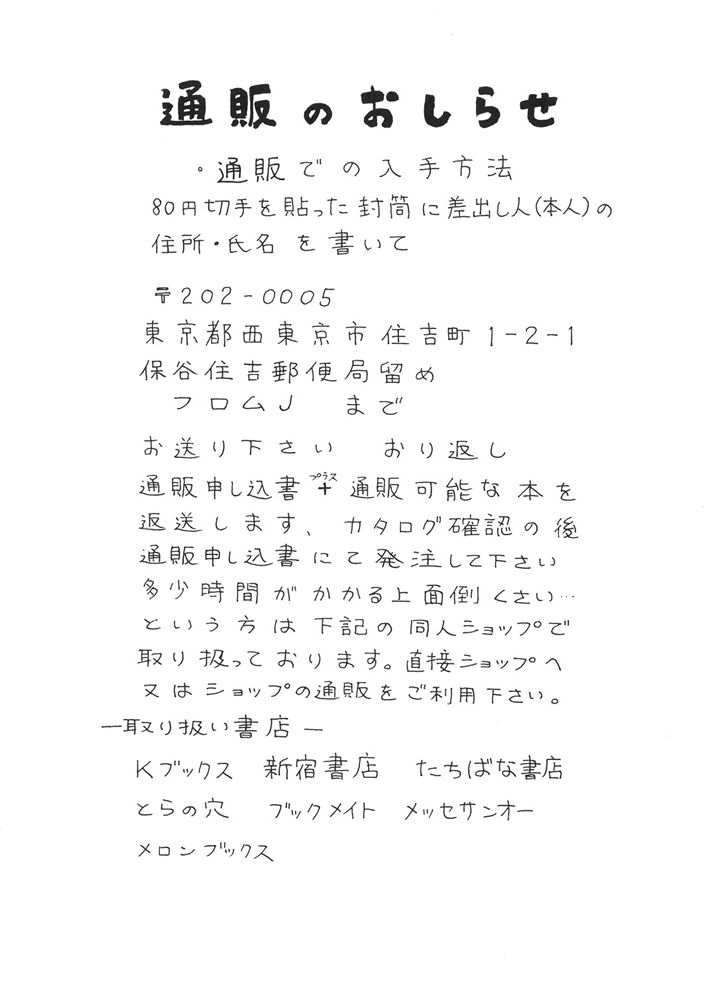 通販のおしらせ
・通販での入手方法
80円切手を貼った封筒に差出し人(本人)の
住所・氏名を書いて
〒202-0005
東京都西東京市住吉町1-2-1
保谷住吉郵便局留め
フロムJ まで
お送り下さい おり返し
通販申し込書+プラス通販可能な本を
返送します、カタログ確認の後
通販申し込書にて発注して下さい
多少時間がかかる上面倒くさい…
という方は下記の同人ショップで
取り扱っております。直接ショップへ
又はショップの通販をご利用下さい。
―取り扱い書店―
Kブックス 新宿書店 たちばな書店
とらの穴 ブックメイト メッセサンオー
メロンブックス